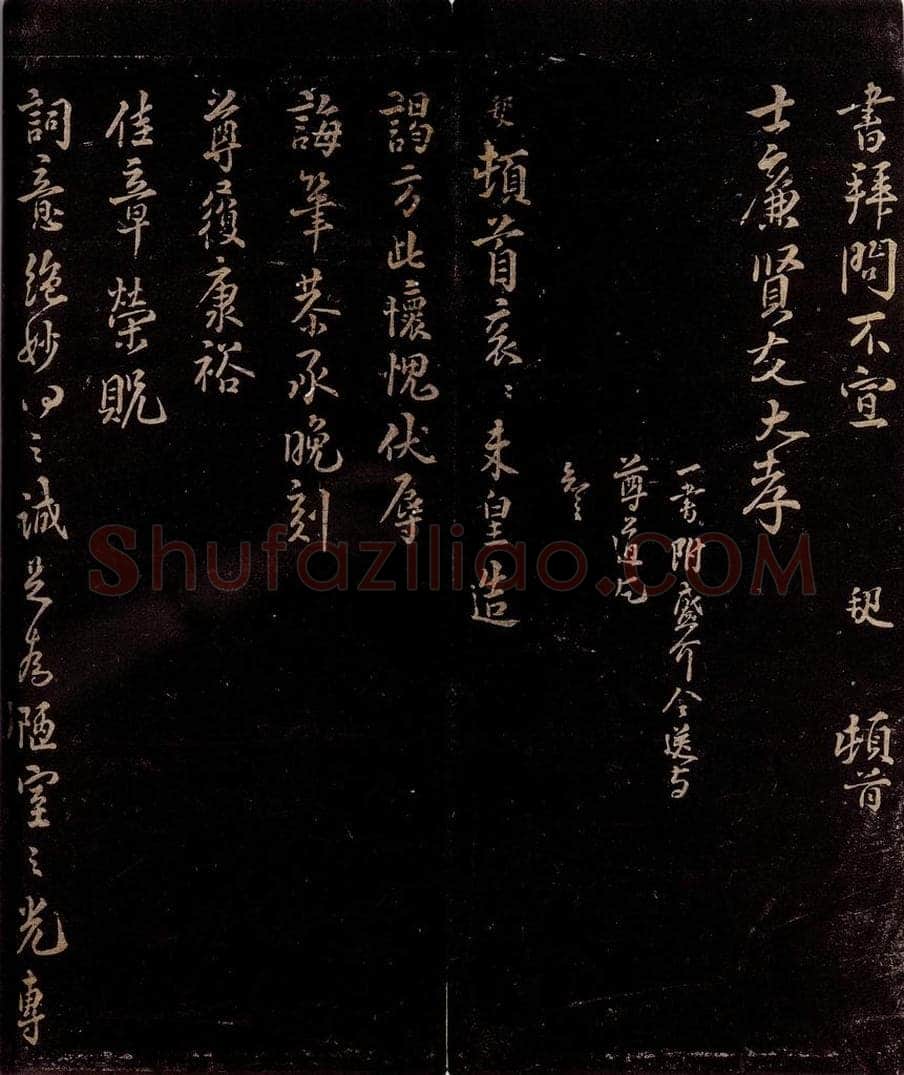 書拜問不宣 頓首
士廉賢友大孝
一書附盛介今送与
尊道兄
頓首衮〻未皇造
謁方此懷愧伏辱
誨筆恭承晚刻
尊履康裕
佳章榮貺
詞意絶妙 誠足為陋室之光專
Shufaziliao.COM